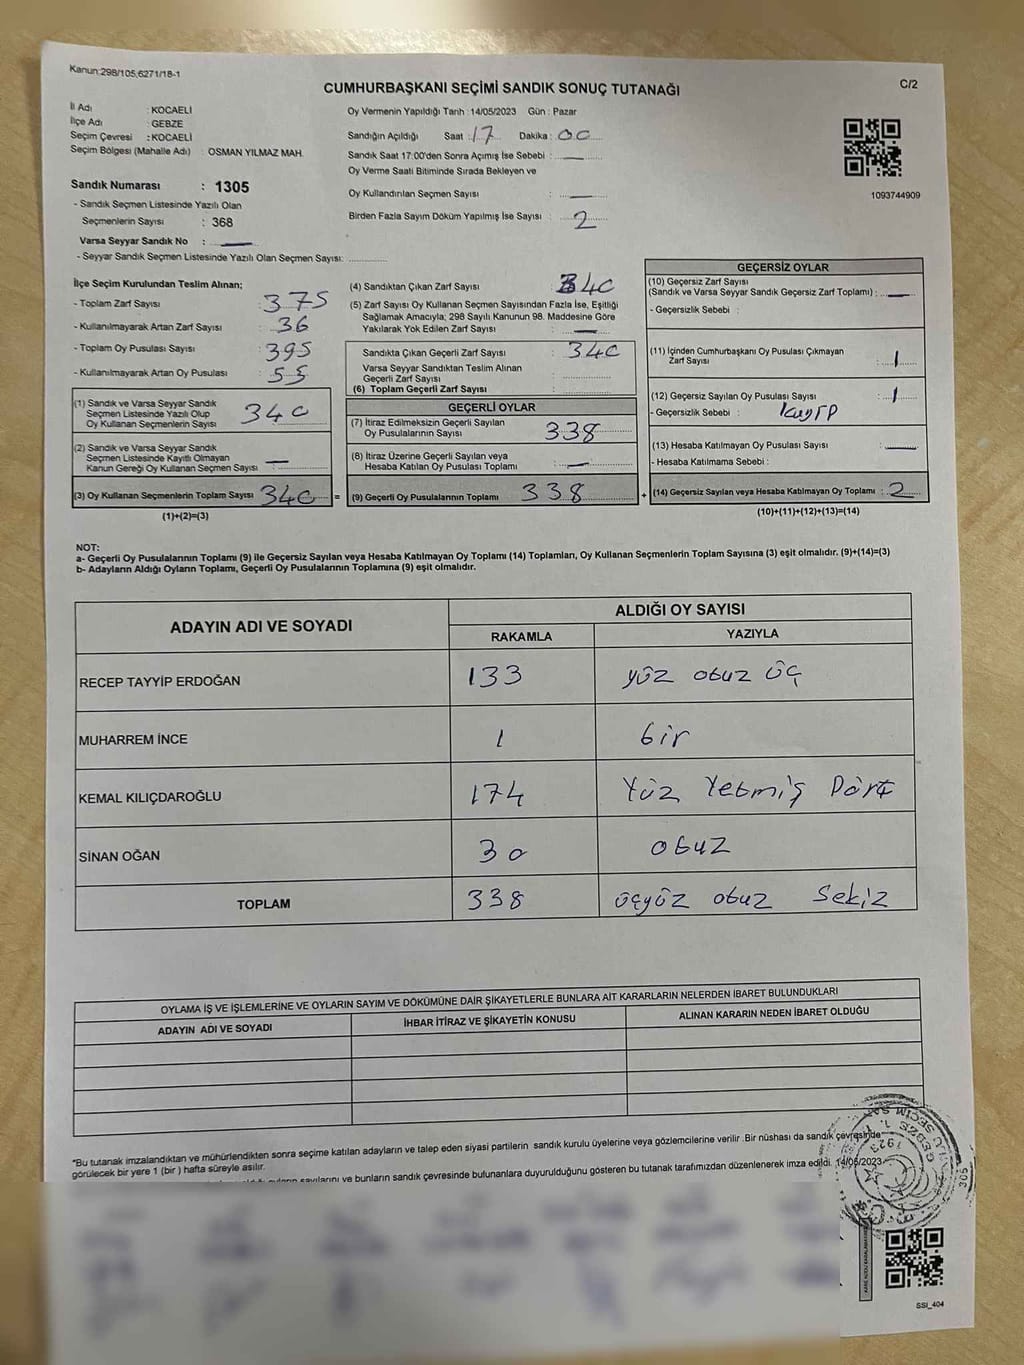 Kanun:298/105,6271/18-1
CUMHURBAŞKANI SEÇİMİ SANDIK SONUÇ TUTANAĞI
C/2
İl Adı : KOCAELİ
İlçe Adı : GEBZE
Seçim Çevresi : KOCAELİ
Seçim Bölgesi (Mahalle Adı) : OSMAN YILMAZ MAH.
Sandık Numarası : 1305
- Sandık Seçmen Listesinde Yazılı Olan
Seçmenlerin Sayısı : 368
Varsa Seyyar Sandık No :
- Seyyar Sandık Seçmen Listesinde Yazılı Olan Seçmen Sayısı:
Oy Vermenin Yapıldığı Tarih : 14/05/2023 Gün : Pazar
Sandığın Açıldığı Saat : 17 Dakika : 00
Sandık Saat 17:00'den Sonra Açımış İse Sebebi :
Oy Verme Saati Bitiminde Sırada Bekleyen ve
Oy Kullandırılan Seçmen Sayısı :
Birden Fazla Sayım Döküm Yapılmış İse Sayısı : 2
1093744909
İlçe Seçim Kurulundan Teslim Alınan;
- Toplam Zarf Sayısı : 375
- Kullanılmayarak Artan Zarf Sayısı : 36
- Toplam Oy Pusulası Sayısı : 395
- Kullanılmayarak Artan Oy Pusulası : 55
(1) Sandık ve Varsa Seyyar Sandık
Seçmen Listesinde Yazılı Olup
Oy Kullanan Seçmenlerin Sayısı : 340
(2) Sandık ve Varsa Seyyar Sandık
Seçmen Listesinde Kayıtlı Olmayan
Kanun Gereği Oy Kullanan Seçmen Sayısı :
(3) Oy Kullanan Seçmenlerin Toplam Sayısı : 340 =
(1)+(2)=(3)
(4) Sandıktan Çıkan Zarf Sayısı : 340
(5) Zarf Sayısı Oy Kullanan Seçmen Sayısından Fazla İse, Eşitliği
Sağlamak Amacıyla; 298 Sayılı Kanunun 98. Maddesine Göre
Yakılarak Yok Edilen Zarf Sayısı :
Sandıkta Çıkan Geçerli Zarf Sayısı : 340
Varsa Seyyar Sandıktan Teslim Alınan
Geçerli Zarf Sayısı :
(6) Toplam Geçerli Zarf Sayısı :
GEÇERLİ OYLAR
(7) İtiraz Edilmeksizin Geçerli Sayılan
Oy Pusulalarının Sayısı : 338
(8) İtiraz Üzerine Geçerli Sayılan veya
Hesaba Katılan Oy Pusulası Toplamı :
(9) Geçerli Oy Pusulalarının Toplamı : 338 +
GEÇERSİZ OYLAR
(10) Geçersiz Zarf Sayısı
(Sandık ve Varsa Seyyar Sandık Geçersiz Zarf Toplamı) :
- Geçersizlik Sebebi :
(11) İçinden Cumhurbaşkanı Oy Pusulası Çıkmayan
Zarf Sayısı : 1
(12) Geçersiz Sayılan Oy Pusulası Sayısı : 1
- Geçersizlik Sebebi : kayıp
(13) Hesaba Katılmayan Oy Pusulası Sayısı :
- Hesaba Katılmama Sebebi :
(14) Geçersiz Sayılan veya Hesaba Katılmayan Oy Toplamı : 2
(10)+(11)+(12)+(13)=(14)
NOT:
a- Geçerli Oy Pusulalarının Toplamı (9) ile Geçersiz Sayılan veya Hesaba Katılmayan Oy Toplamı (14) Toplamları, Oy Kullanan Seçmenlerin Toplam Sayısına (3) eşit olmalıdır. (9)+(14)=(3)
b- Adayların Aldığı Oyların Toplamı, Geçerli Oy Pusulalarının Toplamına (9) eşit olmalıdır.
ADAYIN ADI VE SOYADI
ALDIĞI OY SAYISI
RAKAMLA YAZIYLA
RECEP TAYYİP ERDOĞAN 133 yüz otuz üç
MUHARREM İNCE 1 bir
KEMAL KILIÇDAROĞLU 174 Yüz Yetmiş Dört
SİNAN OĞAN 30 otuz
TOPLAM 338 üçyüz otuz sekiz
OYLAMA İŞ VE İŞLEMLERİNE VE OYLARIN SAYIM VE DÖKÜMÜNE DAİR ŞİKAYETLERLE BUNLARA AİT KARARLARIN NELERDEN İBARET BULUNDUKLARI
ADAYIN ADI VE SOYADI İHBAR İTİRAZ VE ŞİKAYETİN KONUSU ALINAN KARARIN NEDEN İBARET OLDUĞU
"Bu tutanak imzalandıktan ve mühürlendikten sonra seçime katılan adayların ve talep eden siyasi partilerin sandık kurulu üyelerine veya gözlemcilerine verilir .Bir nüshası da sandık çevresinde
görülecek bir yere 1 (bir ) hafta süreyle asılır.
sayılarını ve bunların sandık çevresinde bulunanlara duyurulduğunu gösteren bu tutanak tarafımızdan düzenlenerek imza edildi. 14/05/2023
GEBZE 1.
1923
305
SSI_404